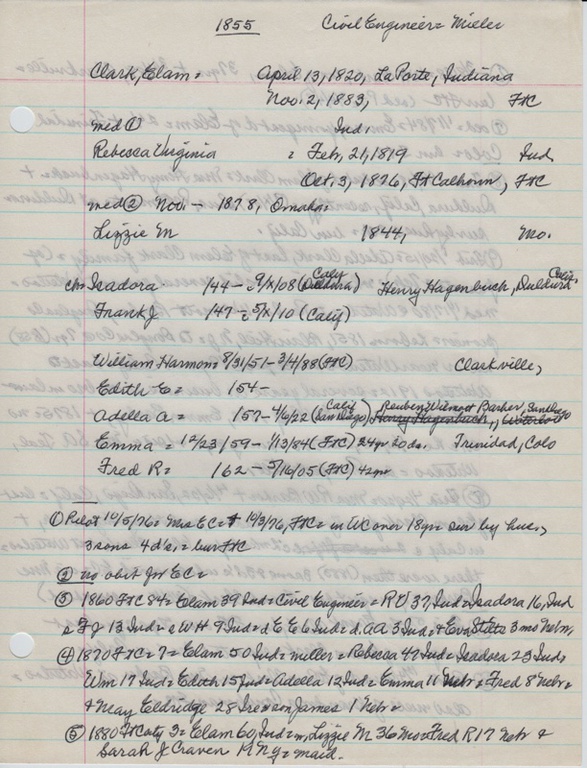 1855 Civil Engineer = Miller
Clark, Elam = April 13, 1820, LaPorte, Indiana
Nov. 2, 1883, FtC
med ① Ind.
Rebecca Virginia = Feb, 21, 1819 Ind
Oct. 3, 1876, Ft Calhoun, FtC
med ② Nov. - 1878, Omaha.
Lizzie M 1844, Mo.
chs Isadora /44 - 9/X/08 (Caly Henry Hagenbuck, Calif.
Frank J /47 - 5/X/10 (Caly)
William Harmon = 8/31/51 - 3/4/88 (FtC) Clarkville,
Edith E = /54 -
Adella A = /57 - 4/6/22 (Caly San Diego) Reuben Wilmott Barber, San Diego Henry Hagenbuck, Waterloo
Emma = 12/23/59 - 1/13/84 (FtC) 24yr 20ds. Trinidad, Colo
Fred R = /62 - 5/16/05 (FtC) 42yr
① Pilot 10/5/76 = Mrs EC = † 10/3/76, FtC = in WC over 18yr = sur by hus.,
3 sons 4 d's, = bur FtC
② no obit for EC =
③ 1860 FtC 84 = Elam 39 Ind = Civil Engineer = RV 37 Ind = Isadora 16, Ind
FJ 13 Ind = WH 9 Ind = d EE 6 Ind = d. AA 3 Ind, + Eva 3 mo Nebr,
④ 1870 FtC = 7 = Elam 50 Ind = miller = Rebecca 47 Ind = Isadora 23 Ind =
Wm 17 Ind = Edith 15 Ind = Adella 12 Ind = Emma 11 Nebr = Fred 8 Nebr =
+ May Eldridge 28 Ire = son James 1 Nebr =
⑤ 1880 FtCaty 3 = Elam 60, Ind = m, Lizzie M 36 Mo = Fred R 17 Nebr =
Sarah J Craven NY = maid.